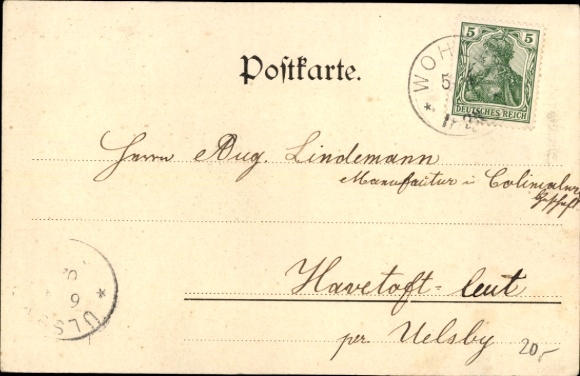 Postkarte.
5 5
DEUTSCHES REICH
* WOH
5
Herrn Aug. Lindemann
Manufactur u Colonialw
Geschäft
Havetoft-leut
per Uelsby
6
* ULS
20,-